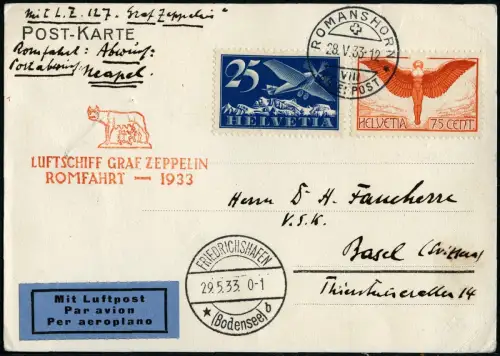 Mit L.Z. 127. "Graf Zeppelin"
POST-KARTE
Romfahrt: Abwurf:
Postabwurf Neapel.
ROMANSHORN
28.V.33-12
VIII
25
HELVETIA
HELVETIA 75 CENT.
LUFTSCHIFF GRAF ZEPPELIN
ROMFAHRT — 1933
Herrn Dr H. Faucherre
V.S.K.
Basel (Svizzera)
Thiersteinerallee 14
FRIEDRICHSHAFEN
29.5.33. 0-1
* (Bodensee) b
Mit Luftpost
Par avion
Per aeroplano